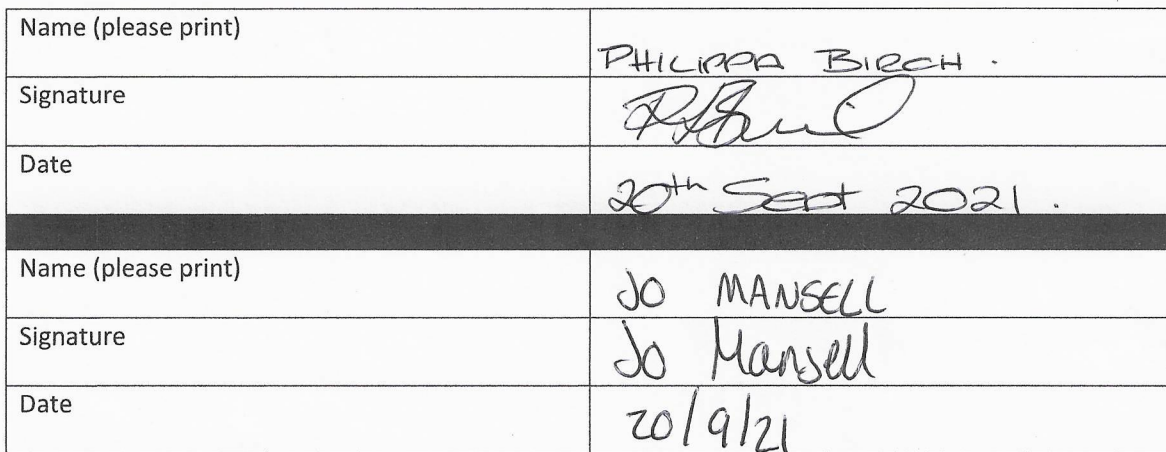 Name (please print)
PHILIPPA BIRCH.
Signature
Date
20th Sept 2021.
Name (please print)
JO MANSELL
Signature
Jo Mansell
Date
20/9/21